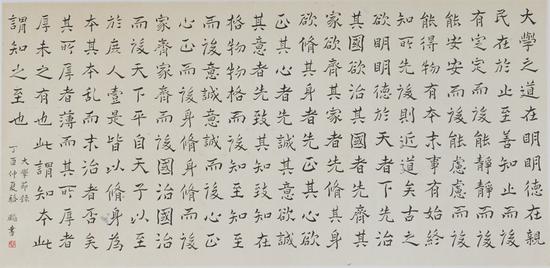 大學之道在明明德在親
民在於止至善知止而後
有定定而後能靜靜而後
能安安而後能慮慮而後
能得物有本末事有始終
知所先後則近道矣古之
欲明明德於天下者先治
其國欲治其國者先齊其
家欲齊其家者先脩其身
欲脩其身者先正其心欲
正其心者先誠其意欲誠
其意者先致其知致知在
格物物格而後知至知至
而後意誠意誠而後心正
心正而後身脩身脩而後
家齊家齊而後國治國治
而後天下平自天子以至
於庶人壹是皆以脩身為
本其本亂而末治者否矣
其所厚者薄而其所者
厚未之有也此謂知本此
謂知之至也
大學節錄
丁酉仲夏 鵬書